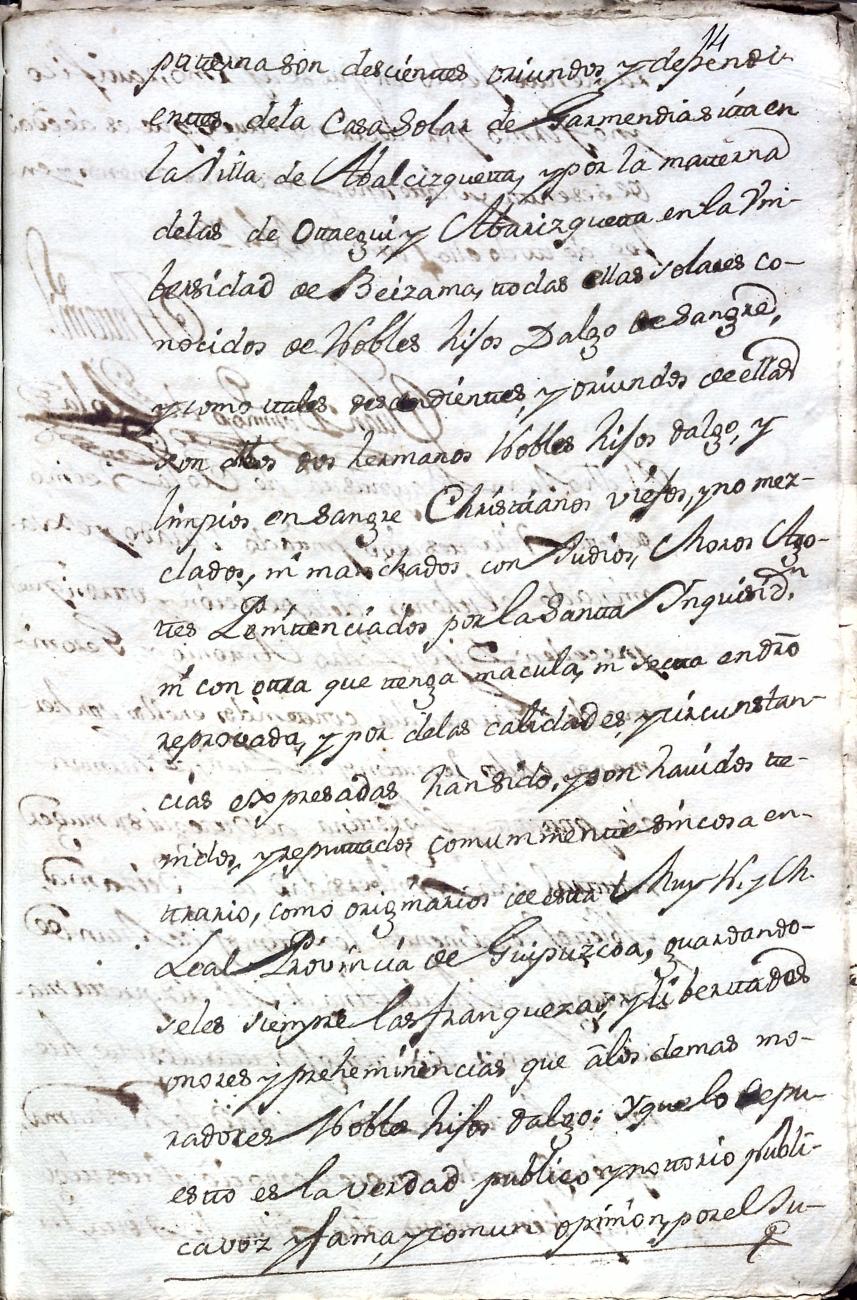 14
paterna son descientes oriundos, y dependi-
entes dela Casa Solar de Garmendia sita en
la Villa de Abalcizqueta, y por la materna
delas de Otaegui y Abarizqueta en la Vni-
bersidad de Beizama, todas ellas solares co-
nocidos de Nobles hijos Dalgo de Sangre,
y como tales desendientes, y oriundos de ellas
son dhos dos hermanos Nobles hijos dalgo, y
limpios en sangre Christianos viejos, y no mez-
clados, ni manchados con Judios, Moros Ago-
tes Penitenciados por la Santa Inquisidn.
ni con otra que tenga macula, ni secta en dro
reprovada, y por delas calidades, y circunstan-
cias expresadas han sido, y son havidos te-
nidos, y reputados comunmente sin cosa en-
trario, como originarios de esta Muy N. y M.
Leal Provincia de Guipuzcoa, guardando-
seles siempre las franquezas, y libertades
onores y preheminencias que álos demas mo-
radores Nobles hijos dalgo: Y que lo depu-
esto es la verdad publico y notorio publi-
ca voz y fama, y comun opinion, por el Ju-